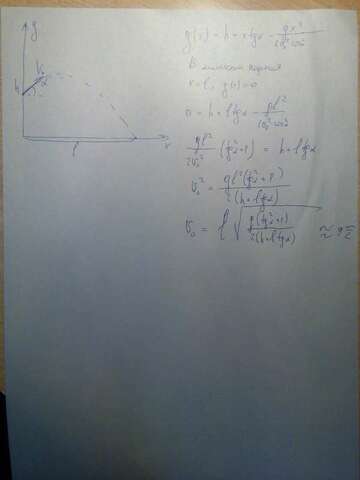 y
V₀
α
h
l
x
y(x) = h + x tgα - gx²/(2V₀² cos²α)
В момент падения
x = l, y(x) = 0
0 = h + l tgα - gl²/(2V₀² cos²α)
gl²/(2V₀²) (tg²α + 1) = h + l tgα
V₀² = gl²(tg²α + 1)/(2(h + l tgα))
V₀ = l √(g(tg²α + 1)/(2(h + l tgα))) ≈